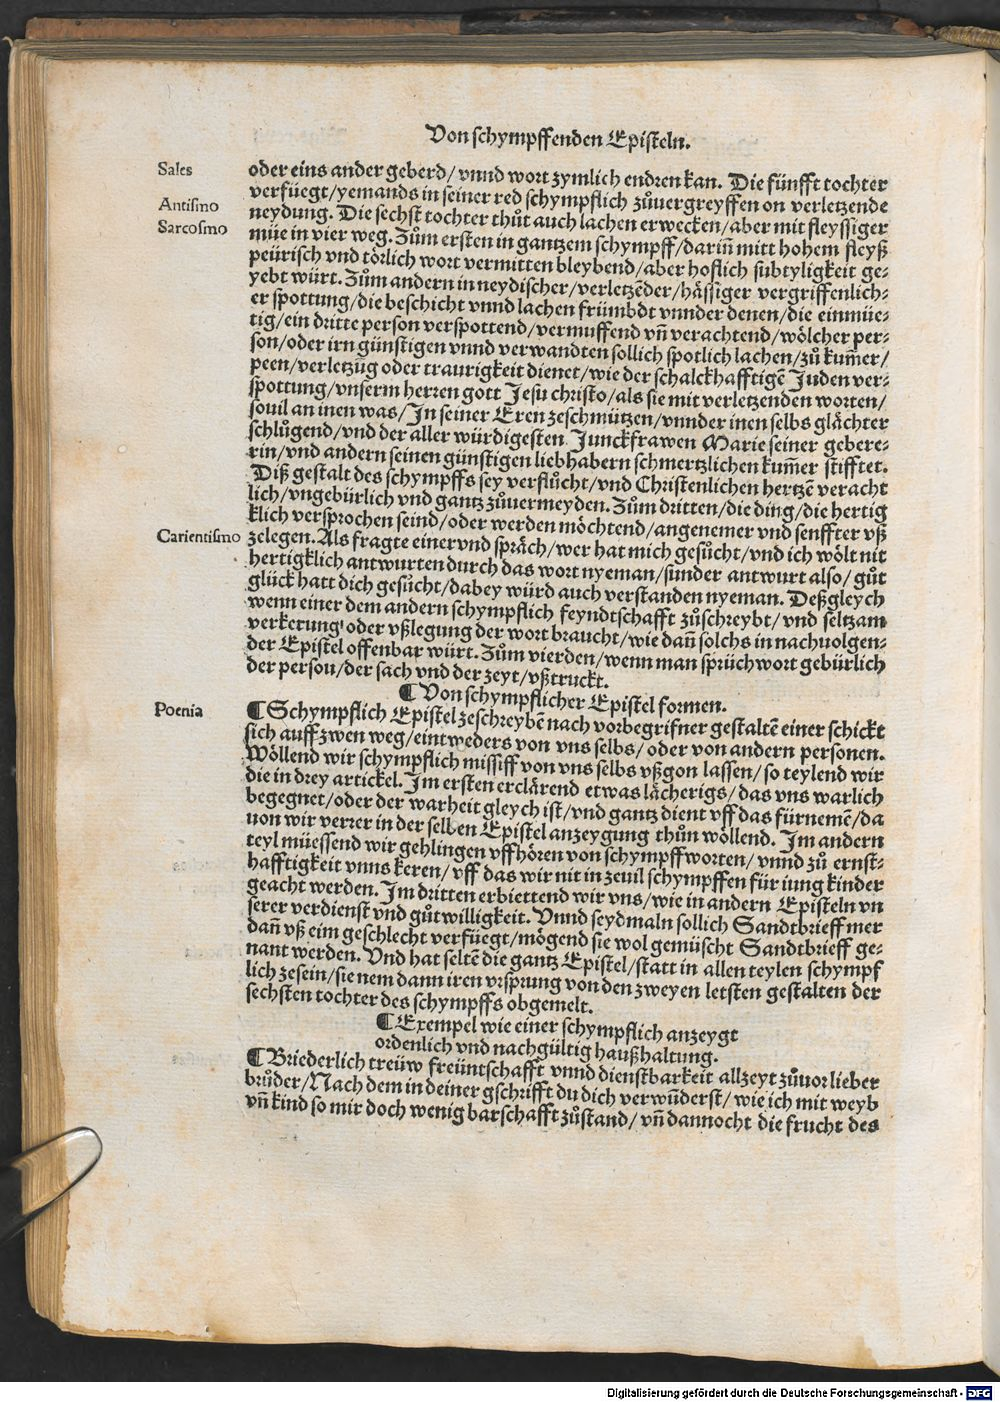 Von schympffenden Episteln.
Sales
oder eins ander geberd/ vnnd wort zymlich endren kan. Die fünfft tochter
verfüegt/ yemands in seiner red schympflich zůuergreyffen on verletzende
Antismo
neydung. Die sechst tochter thůt auch lachen erwecken/ aber mit fleyssiger
Sarcosmo
müe in vier weg. Zům ersten in gantzem schympff/ dariñ mitt hohem fleyß
peürisch vnd törlich wort vermitten bleybend/ aber hoflich subtyligkeit ge-
yebt würt. Zům andern in neydischer/ verletzēder/ hässiger vergriffenlich-
er spottung/ die beschicht vnnd lachen frümbdt vnnder denen/ die einmüe-
tig/ ein dritte person verspottend/ vermuffend vñ verachtend/ wölcher per-
son/ oder irn günstigen vnnd verwandten sollich spotlich lachen/ zů kum̄er/
peen/ verletzũg oder traurigkeit dienet/ wie der schalckhafftigē Juden ver-
spottung/ vnserm herren gott Jesu christo/ als sie mit verletzenden worten/
souil an inen was/ In seiner Eren zeschmützen/ vnnder inen selbs glächter
schlůgend/ vnd der aller würdigesten Junckfrawen Marie seiner gebere-
rin/ vnd andern seinen günstigen liebhabern schmertzlichen kum̄er stifftet.
Diß gestalt des schympffs sey verflůcht/ vnd Christenlichen hertzē veracht
lich/ vngebürlich vnd gantz zůuermeyden. Zům dritten/ die ding/ die hertig
klich versprochen seind/ oder werden möchtend/ angenemer vnd senffter vß
Carientismo
zelegen. Als fragte einer vnd spräch/ wer hat mich gesůcht/ vnd ich wölt nit
hertigklich antwurten durch das wort nyeman/ sunder antwurt also/ gůt
glück hatt dich gesůcht/ dabey würd auch verstanden nyeman. Deßgleych
wenn einer dem andern schympflich feyndtschafft zůschreybt/ vnd seltzam
verkerung oder vßlegung der wort braucht/ wie dañ solchs in nachuolgen-
der Epistel offenbar würt. Zům vierden/ wenn man sprüchwort gebürlich
der person/ der sach vnd der zeyt/ vßtruckt.
¶ Von schympflicher Epistel formen.
Poenia
¶ Schympflich Epistel zeschreybē nach vorbegrifner gestaltē einer schickt
sich auff zwen weg/ eintweders von vns selbs/ oder von andern personen.
Wöllend wir schympflich missiff von vns selbs vßgon lassen/ so teylend wir
die in drey artickel. Im ersten erclärend etwas lächerigs/ das vns warlich
begegnet/ oder der warheit gleych ist/ vnd gantz dient vff das fürnemē/ da
uon wir verrer in der selben Epistel anzeygung thůn wöllend. Im andern
teyl müessend wir gehlingen vffhören von schympffworten/ vnnd zů ernst-
hafftigkeit vnns keren/ vff das wir nit in zeuil schympffen für iung kinder
geacht werden. Im dritten erbiettend wir vns/ wie in andern Episteln vn
serer verdienst vnd gůtwilligkeit. Vnnd seydmaln sollich Sandtbrieff mer
dañ vß eim geschlecht verfüegt/ mögend sie wol gemüscht Sandtbrieff ge-
nant werden. Vnd hat seltē die gantz Epistel/ statt in allen teylen schympf
lich zesein/ sie nem dann iren vrsprung von den zweyen letsten gestalten der
sechsten tochter des schympffs obgemelt.
¶ Exempel wie einer schympflich anzeygt
ordenlich vnd nachgültig haußhaltung.
¶ Briederlich treüw freüntschafft vnnd dienstbarkeit allzeyt zůuor lieber
brůder/ Nach dem in deiner gschrifft du dich verwūderst/ wie ich mit weyb
vñ kind so mir doch wenig barschafft zůstand/ vñ dannocht die frucht des
Digitalisierung gefördert durch die Deutsche Forschungsgemeinschaft - DFG